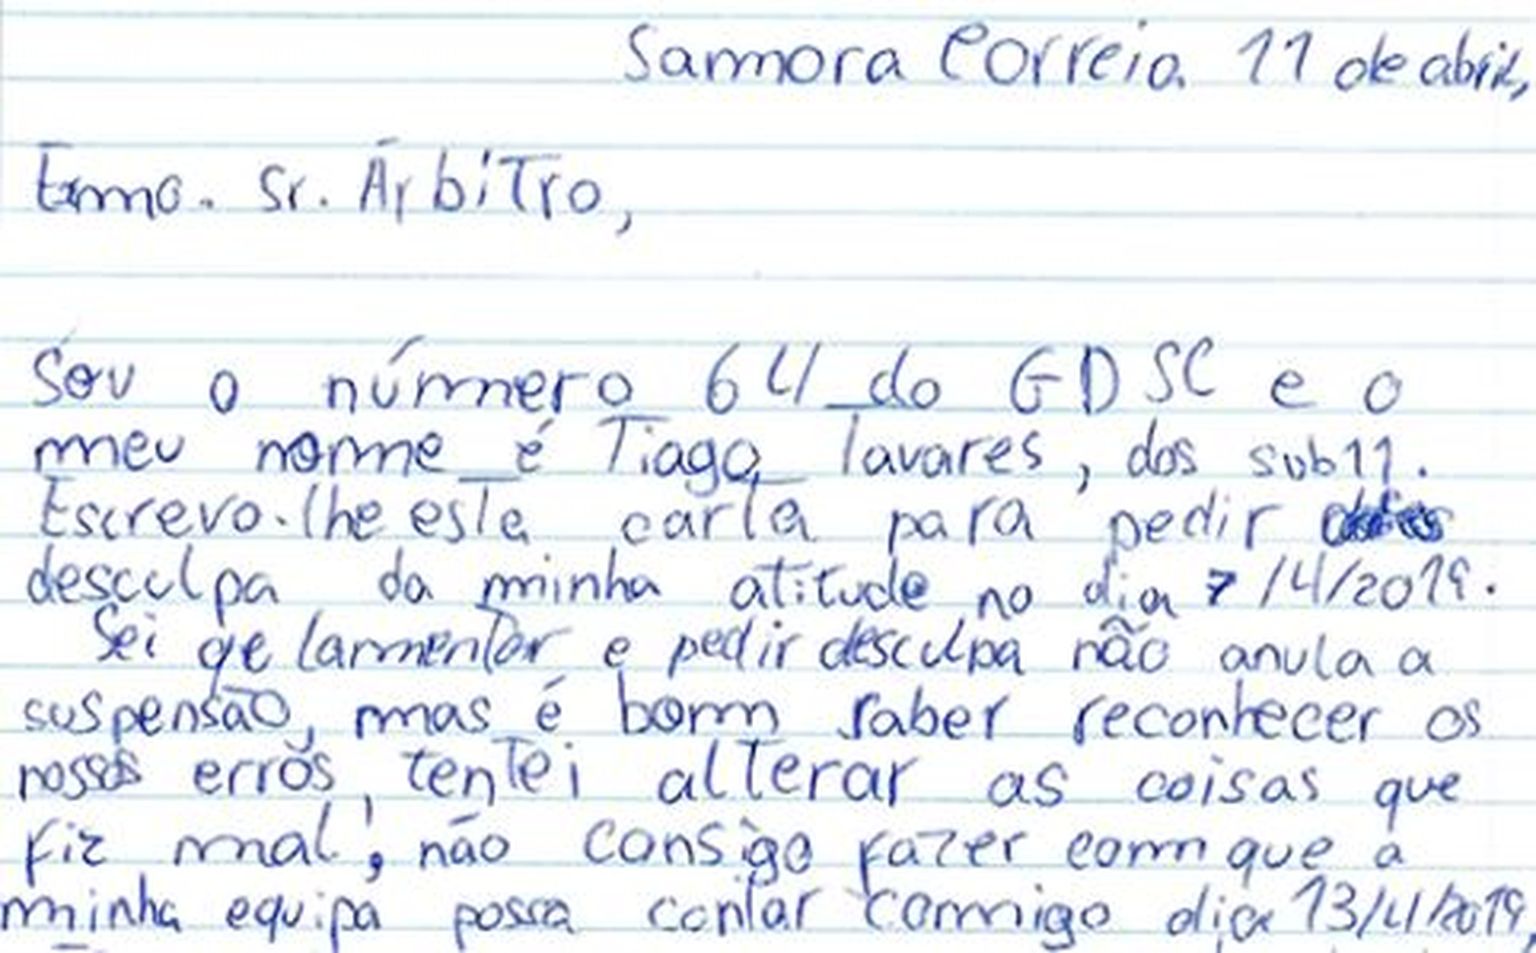 Samora Correia 11 de abril,
Exmo. Sr. Árbitro,
Sou o número 64 do GDSC e o
meu nome é Tiago Tavares, dos sub11.
Escrevo-lhe esta carta para pedir
desculpa da minha atitude no dia 7/4/2019.
Sei qe lamentar e pedir desculpa não anula a
suspensão, mas é bom saber reconhecer os
nossos erros, tentei alterar as coisas que
fiz mal!, não consigo fazer com que a
minha equipa possa contar comigo dia 13/4/2019,